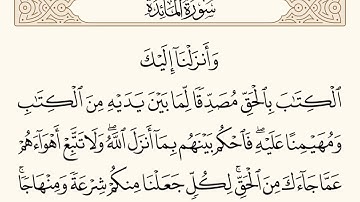 سُورَةُ المَائِدَةِ
وَأَنزَلْنَآ إِلَيْكَ
ٱلْكِتَٰبَ بِٱلْحَقِّ مُصَدِّقًا لِّمَا بَيْنَ يَدَيْهِ مِنَ ٱلْكِتَٰبِ
وَمُهَيْمِنًا عَلَيْهِ ۖ فَٱحْكُم بَيْنَهُم بِمَآ أَنزَلَ ٱللَّهُ ۖ وَلَا تَتَّبِعْ أَهْوَآءَهُمْ
عَمَّا جَآءَكَ مِنَ ٱلْحَقِّ ۚ لِكُلٍّ جَعَلْنَا مِنكُمْ شِرْعَةً وَمِنْهَاجًا ۚ